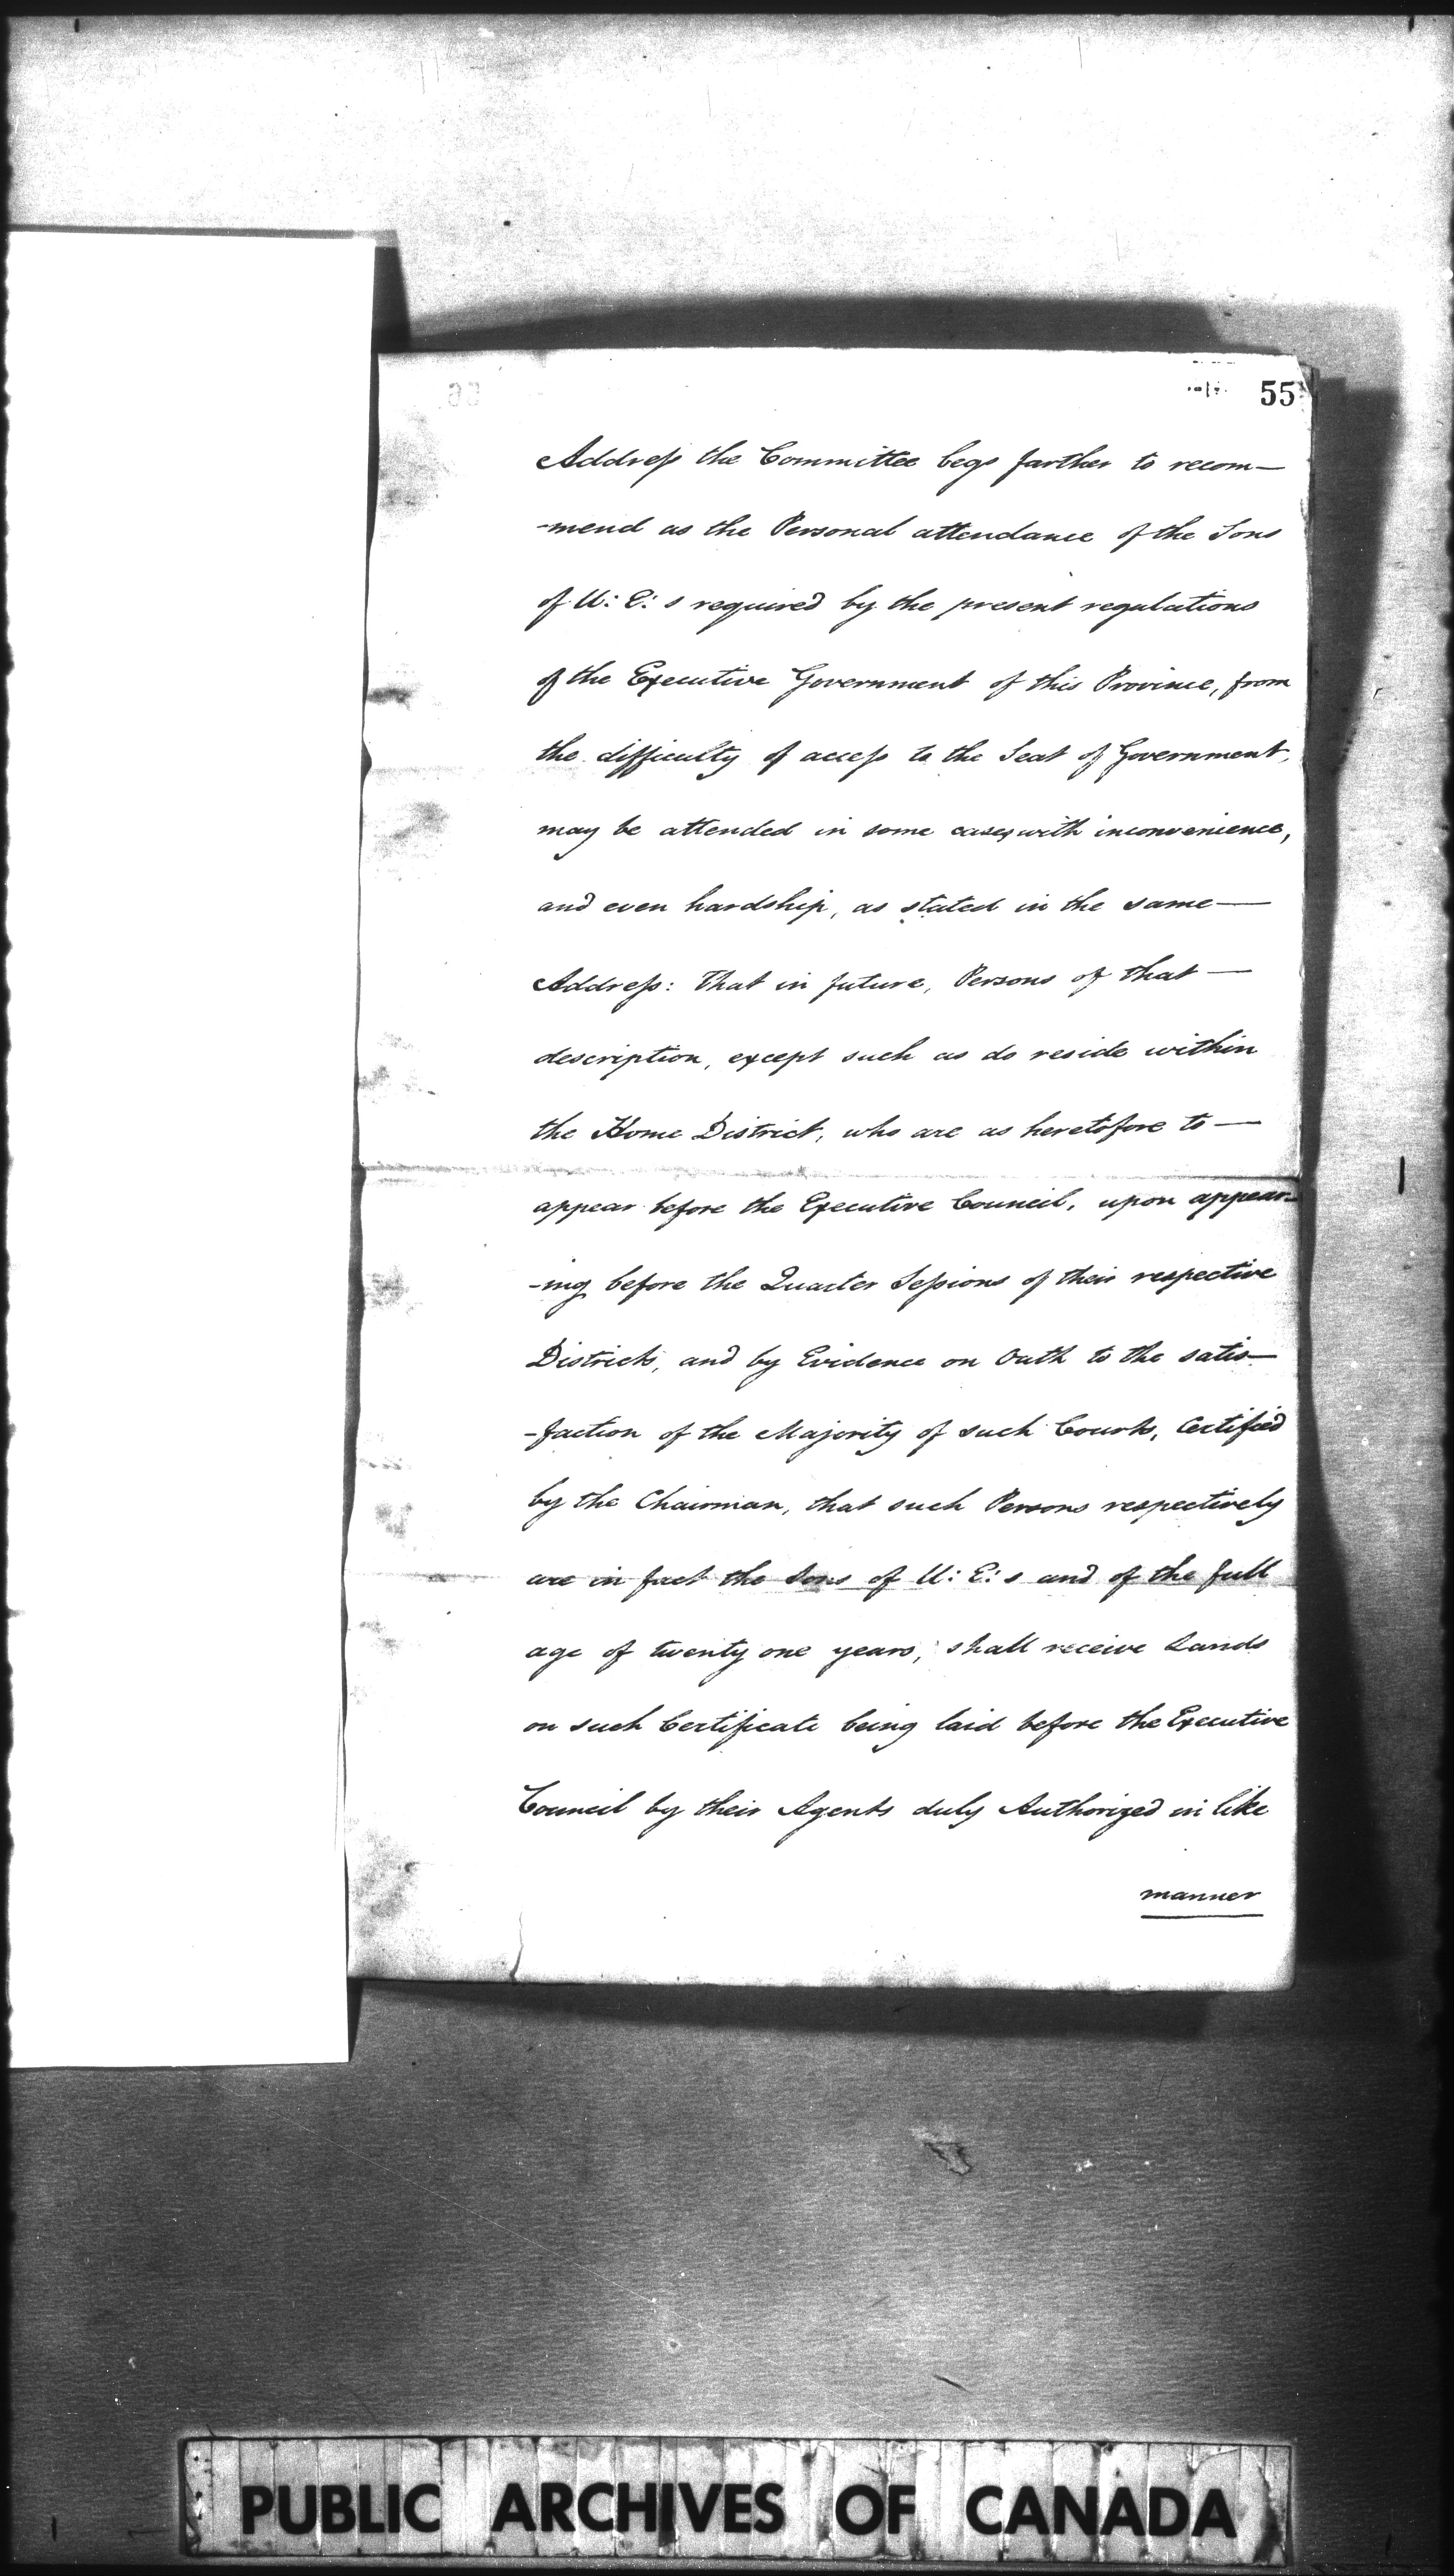 55
Address the Committee begs farther to recom—
-mend as the Personal attendance of the Sons
of U: E: s required by the present regulations
of the Executive Government of this Province, from
the difficulty of access to the Seat of Government,
may be attended in some cases with inconvenience,
and even hardship, as stated in the same—
Address: That in future, Persons of that—
description, except such as do reside within
the Home District, who are as heretofore to—
appear before the Executive Council, upon appear-
-ing before the Quarter Sessions of their respective
Districts, and by Evidence on Oath to the satis—
-faction of the Majority of such Courts, Certified
by the Chairman, that such Persons respectively
are in fact the Sons of U: E: s and of the full
age of twenty one years, shall receive Lands
on such Certificate being laid before the Executive
Council by their Agents duly Authorized in like
manner
PUBLIC ARCHIVES OF CANADA